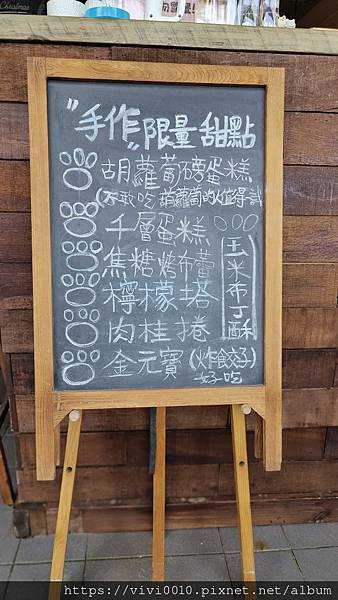 "手作"限量甜點
胡蘿蔔磅蛋糕
(不敢吃胡蘿蔔的值得試
千層蛋糕
焦糖烤布蕾
檸檬塔
肉桂捲
金元寶(炸餃子)
好吃
玉米布丁酥
https://vivi0010.pixnet.net/album